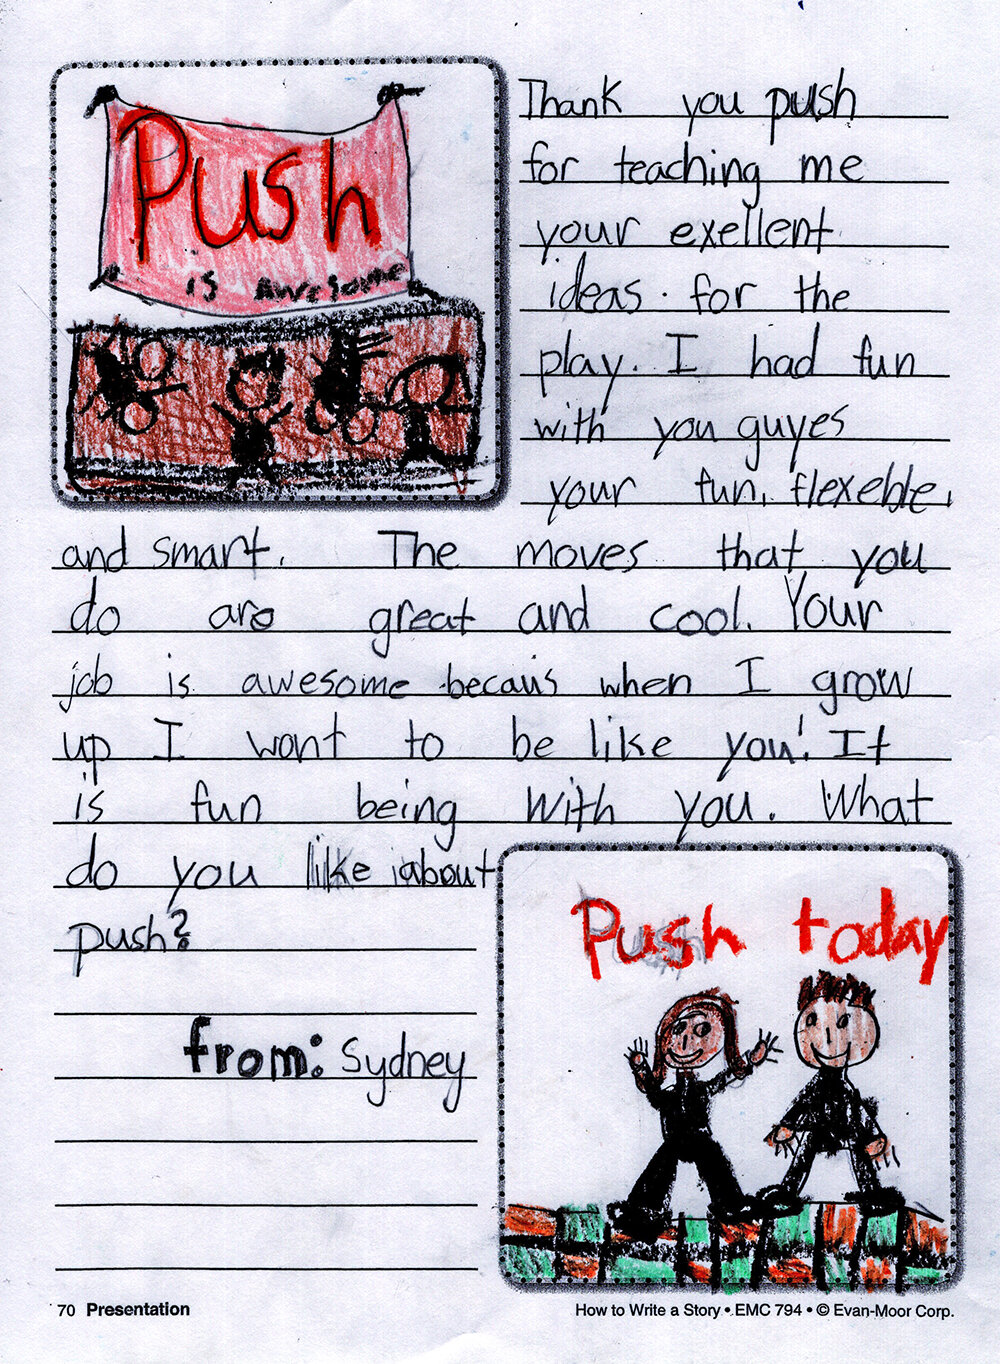 Push
is awesome
Thank you push
for teaching me
your exellent
ideas. for the
play. I had fun
with you guyes
your fun, flexeble,
and smart. The moves that you
do are great and cool. Your
job is awesome becaus when I grow
up I want to be like you! It
is fun being with you. What
do you like about
push?
from: Sydney
Push today
70 Presentation
How to Write a Story • EMC 794 • © Evan-Moor Corp.